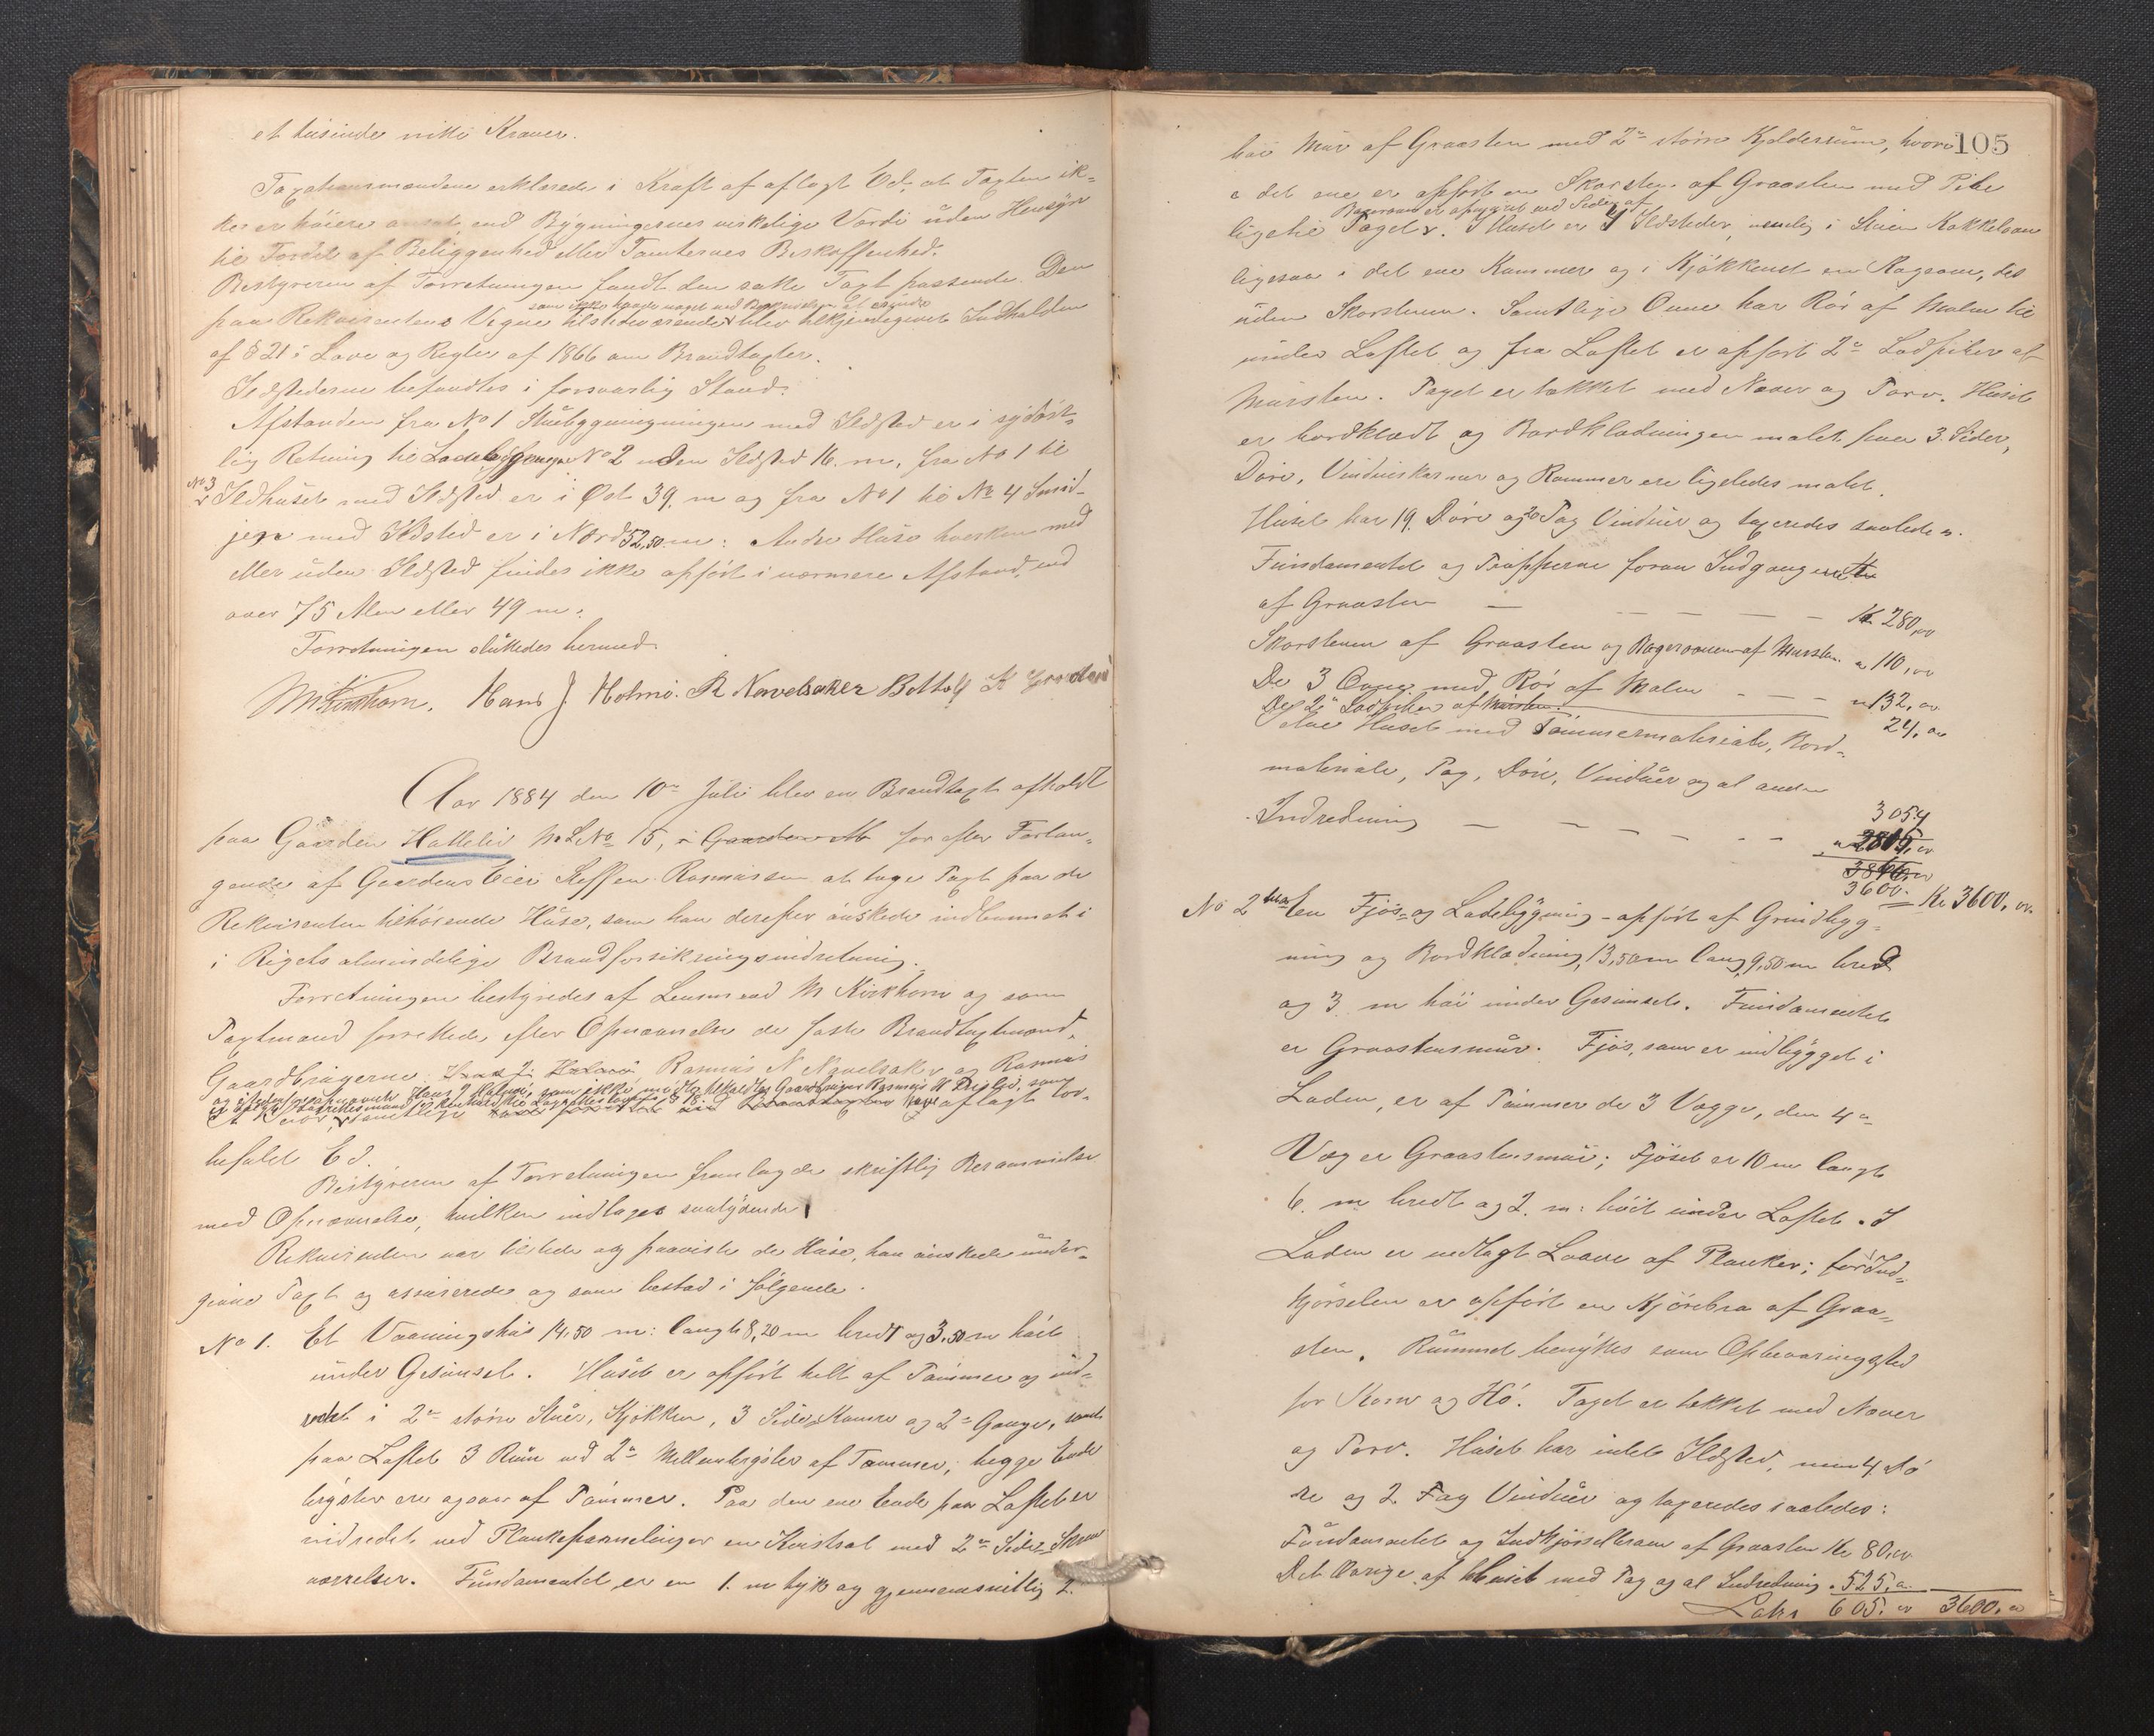 et tusinde nitti Kroner.
Taxationsmændene erklærede i Kraft af aflagt Ed, at Taxten ik-
ke er høiere ansat, end Bygningernes virkelige Værdi uden Hensyn
til Fordel af Beliggenhed eller Tomternes Beskaffenhed.
Bestyreren af Forretningen fandt den satte Taxt passende. Den
som ikke havde noget ved Beskrivelsen at erindre
paa Rekvirentens Vegne tilstedeværende blev tilkjendegivet Indholden
af § 21 i Love og Regler af 1866 om Brandtaxter.
Ildstederne befandtes i forsvarlig Stand.
Afstanden fra No 1 Stuebygningningen med Ildsted er i sydøst-
lig Retning til Ladebygningen No 2 uden Ildsted 16. m, fra No 1 til
No 3
Ildhuset med Ildsted er i Øst 39. m og fra No 1 til No 4 Smid-
jen med Ildsted er i Nord 52,50 m: Andre Huse hverken med
eller uden Ildsted findes ikke opført i nærmere Afstand, end
over 75 Alen eller 49 m.
Forretningen sluttedes hermed.
M Kirkhorn. Hans J. Holmø. R Navelsaker Bottolf K
Aar 1884 den 10de Juli blev en Brandtaxt afholdt
paa Gaarden Hattelid M. L. No 15, for efter Forlan-
gende af Gaardens Eier Steffen Rasmussen at tage Taxt paa de
Rekvirenten tilhørende Huse, som han derefter ønskede indlemmet i
i Rigets almindelige Brandforsikringsindretning.
Forretningen bestyredes af Lensmand M Kirkhorn og som
Taxtmænd forrettede efter Opnævnelse de faste Brandtaxtmænd,
Gaardbrugerne Rasmus N Navelsaker og Rasmus
og istedetfor opnævnte Hans J Holmø, som ikke mødte, tilkaldtes Gaardbruger Rasmus
samtlige have aflagt lov-
befalet Ed.
Bestyreren af Forretningen fremlagde skriftlig Berammelse
med Opnævnelse, hvilken indtages saalydende
Rekvirenten var tilstede og paaviste de Huse, han ønskede under-
given Taxt og assurerede og som bestod i følgende.
No 1. Et Vaaningshus 14,50 m: langt 8,20 m bredt og 3,50 m høit
under Gesimset. Huset er opført helt af Tømmer og ind-
redet i 2de større Stuer, Kjøkken, 3 Side-Kamre og 2de Gange, samt
paa Loftet 3 Rum ved 2de Mellembryster af Tømmer; begge Ende
bryster ere ogsaa af Tømmer. Paa den ene Ende paa Loftet er
indredet ved Plankepannelinger en Kvistsal med 2de Side-Skum
værelser. Fundamentet er en 1. m tyk og gjennemsnitlig 2.
105
høi Mur af Graasten med 2de større Kjelderrum, hvori
i det ene er opført en Skorsten af Graasten med Pibe
Bagerovn er opmuret ved Siden af
ligetil Taget. I Huset er 4 Ildsteder, nemlig i Stuen Kakkelovn
ligesaa i det ene Kammer og i Kjøkkenet en Kogeovn, des
uden Skorstenen. Samtlige Ovne har Rør af Malm til
under Loftet og fra Loftet er opført 2de Lodpiber af
Mursten. Taget er tækket med Næver og Torv. Huset
er bordklædt og Bordklædningen malet paa 3. Sider,
Døre, Vindueskarmer og Rammer ere ligeledes malet.
Huset har 19. Døre og 20 Fag Vinduer og taxeredes saaledes.
Fundamentet og Trapperne foran Indgangene
af Graasten — — — — Kr 280,00
Skorstenen af Graasten og Bagerovnen af Mursten " 110,00
De 3 Ovne med Rør af Malm — — — " 132,00
De 2de Lodpiber af Mursten 24,00
Selve Huset med Tømmermateriale, Bord-
materiale, Tag, Døre, Vinduer og al anden
3054
Indredning — — — — — " 2805,00
3600. = Kr 3600,00
No 2 En Fjøs- og Ladebygning - opført af Grindbyg-
ning og Bordklædning, 13,50 m lang, 9,50 m bred
og 3. m høi under Gesimset. Fundamentet
er Graastensmur. Fjøs, som er indbygget i
Laden, er af Tømmer de 3 Vægge, den 4de
Væg er Graastensmur; Fjøset er 10 m langt
6. m bredt og 2. m: høit under Loftet. I
Laden er nedlagt Laave af Planker; for Ind-
kjørselen er opført en Kjørebro af Graa-
sten. Rummet benyttes som Opbevaringssted
for Korn og Hø. Taget er tækket med Næver
og Torv. Huset har intet Ildsted, men 4 Dø
re og 2 Fag Vinduer og taxeredes saaledes:
Fundamentet og Indkjørselbroen af Graasten Kr 80,00
Det Øvrige af Huset med Tag og al Indredning " 525,00
Lateris 605,00 3600,00